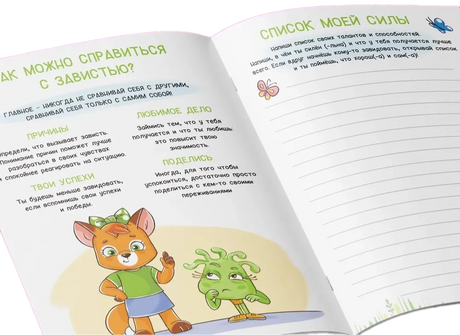 АК МОЖНО СПРАВИТЬСЯ
С ЗАВИСТЬЮ?
ГЛАВНОЕ - НИКОГДА НЕ СРАВНИВАЙ СЕБЯ С ДРУГИМИ,
СРАВНИВАЙ СЕБЯ ТОЛЬКО С САМИМ СОБОЙ!
ПРИЧИНЫ
предели, что вызывает зависть.
Понимание причин поможет лучше
разобраться в своих чувствах
и спокойнее реагировать на ситуацию.
ТВОИ УСПЕХИ
Ты будешь меньше завидовать,
если вспомнишь свои успехи
и победы.
ЛЮБИМОЕ ДЕЛО
Займись тем, что у тебя
получается и что ты любишь:
это повысит твою
значимость.
ПОДЕЛИСЬ
Иногда, для того чтобы
успокоиться, достаточно просто
поделиться с кем-то своими
переживаниями
СПИСОК МОЕЙ СИЛЫ
Напиши список своих талантов и способностей.
Напиши, в чём ты силён (-льна) и что у тебя получается лучше
всего. Если вдруг начнёшь кому-то завидовать, открывай список
и ты поймёшь, что хорош(-а) и сам(-а)!